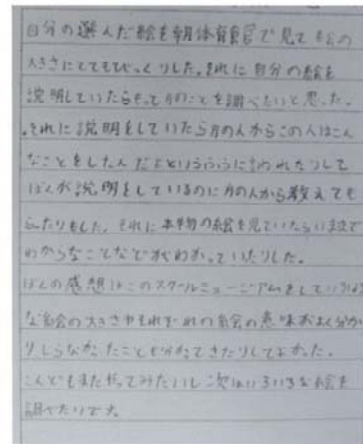 自分の選んだ絵を朝体育館で見て絵の
大きさにとてもびっくりした。それに自分の絵を
説明していたらもっと月のことを調べたいと思った。
それに説明をしていたら月の人からこの人はこん
なことをした人だよというふうに言われたりして
ぼくが説明をしているのに月の人から教えても
らったりもした。それに本物の絵を見ていたらいままで
わからなことなどがわかっていたりした。
ぼくの感想はこのスクールミュージアムをしていろいろ
な絵の大きさやそれぞれの絵の意味がよく分か
りしらなかったことも分かってきたりしてよかった。
こんどもまたやってみたいし次はいろいろな絵を
調べたいです。